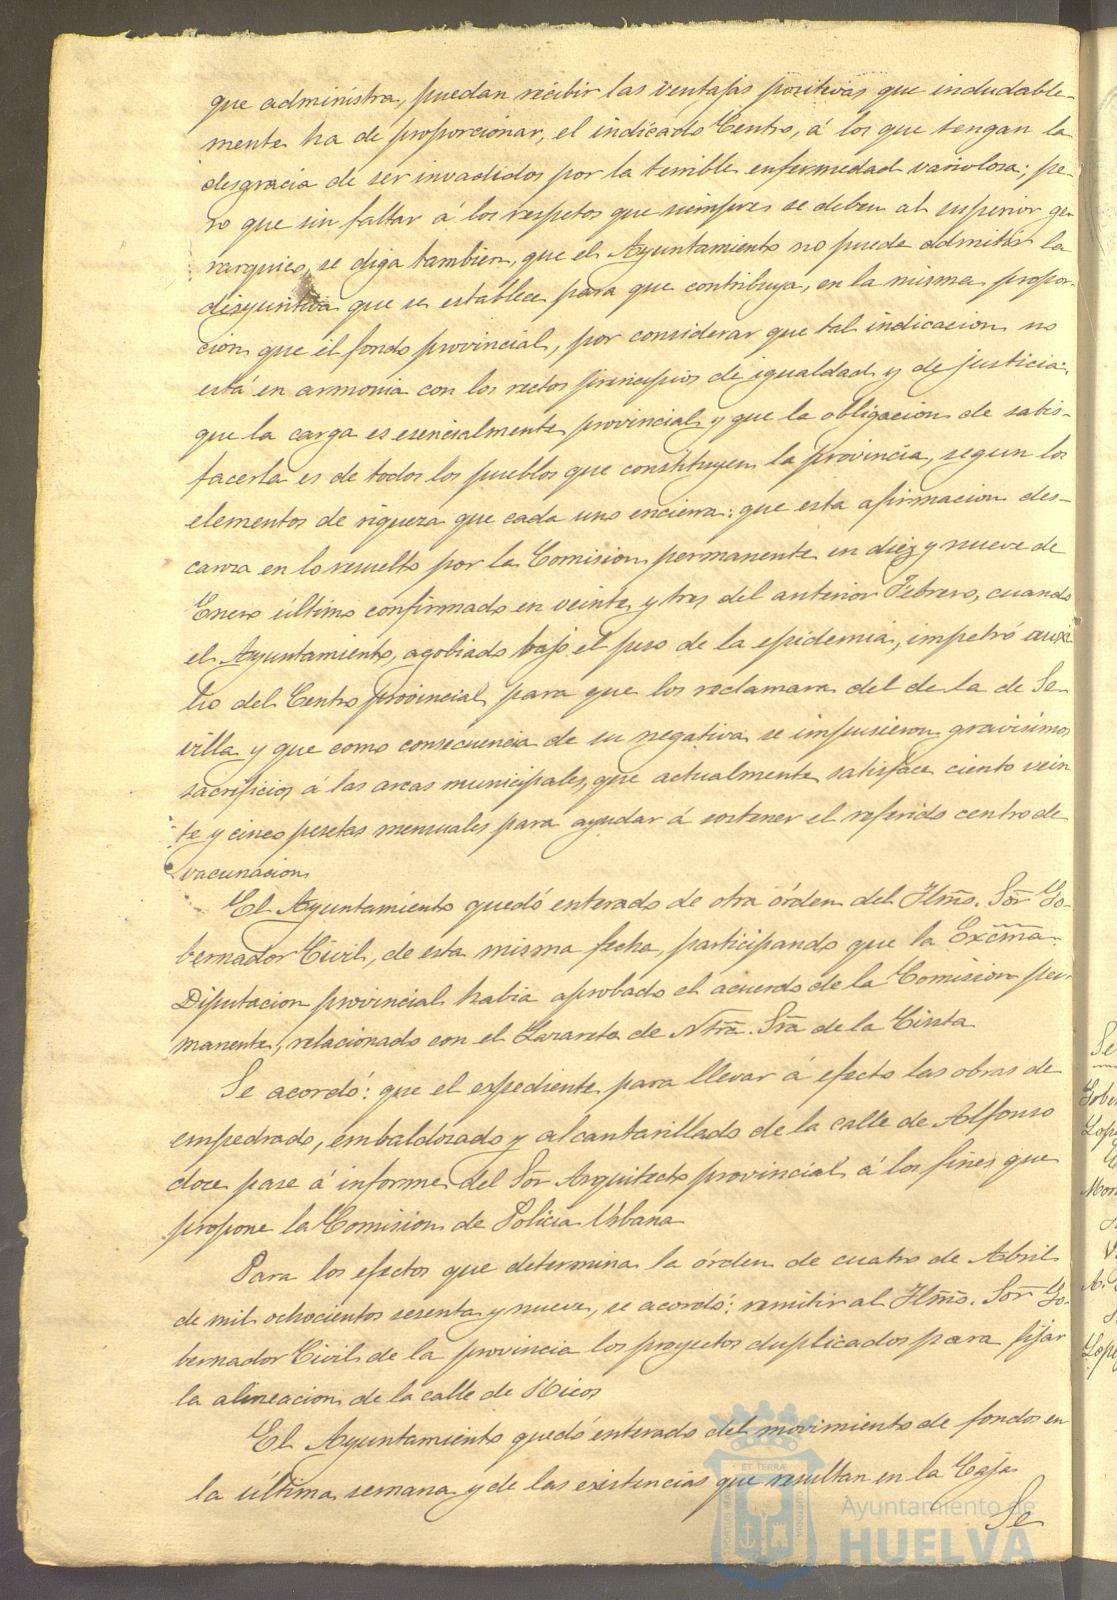 que administra, puedan recibir las ventajas positivas que indudable-
mente ha de proporcionar, el indicado Centro, á los que tengan la
desgracia de ser invadidos por la terrible enfermedad variolosa; pe-
ro que sin faltar á los respetos que siempre se deben al superior ge-
rarquico, se diga tambien, que el Ayuntamiento no puede admitir la
disyuntiva que se establece para que contribuya, en la misma propor-
cion que el fondo provincial, por considerar que tal indicacion no
está en armonia con los rectos principios de igualdad y de justicia:
que la carga es esencialmente provincial y que la obligacion de satis-
facerla es de todos los pueblos que constituyen la provincia, segun los
elementos de riqueza que cada uno encierra: que esta afirmacion des-
canza en lo resuelto por la Comision permanente en diez y nueve de
Enero último confirmado en veinte y tres del anterior Febrero, cuando
el Ayuntamiento, agobiado bajo el peso de la epidemia, impetró auxi
lio del Centro provincial para que los reclamara del de la de Se
villa y que como consecuencia de su negativa se impusieron gravisimos
sacrificios á las arcas municipales, que actualmente satisface ciento vein
te y cinco pesetas mensuales para ayudar á sostener el referido centro de
vacunacion
El Ayuntamiento quedó enterado de otra órden del Iltmo. Sor Go-
bernador Civil, de esta misma fecha, participando que la Excma.
Diputacion provincial habia aprobado el acuerdo de la Comision per-
manente, relacionado con el Lazareto de Ntra. Sra de la Cinta
Se acordó: que el expediente para llevar á efecto las obras de
empedrado, embaldosado y alcantarillado de la calle de Alfonso
doce pase á informe del Sor Arquitecto provincial á los fines que
propone la Comision de Policia Urbana
Para los efectos que determina la órden de cuatro de Abril
de mil ochocientos sesenta y nueve, se acordó: remitir al Iltmo. Sor Go-
bernador Civil de la provincia los proyectos duplicados para fijar
la alineacion de la calle de Ricos
El Ayuntamiento quedó enterado del movimiento de fondos en
la última semana y de las existencias que resultan en la Caja
Se
Ayuntamiento de
HUELVA